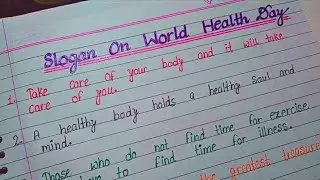 Slogan On World Health Day
1. Take care of your body and it will take
care of you.
2. A healthy body holds a healthy soul and
mind.
Those who do not find time for exercise
to find time for illness.
the greatest treasure